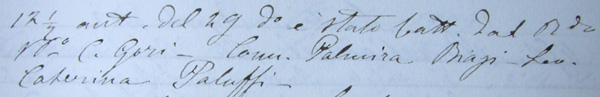 12 1/2 ant. del 29 do è stato batt. dal R do
Sto C. Gori - Com. Palmira Biagi - Lev.
Caterina Paluffi -